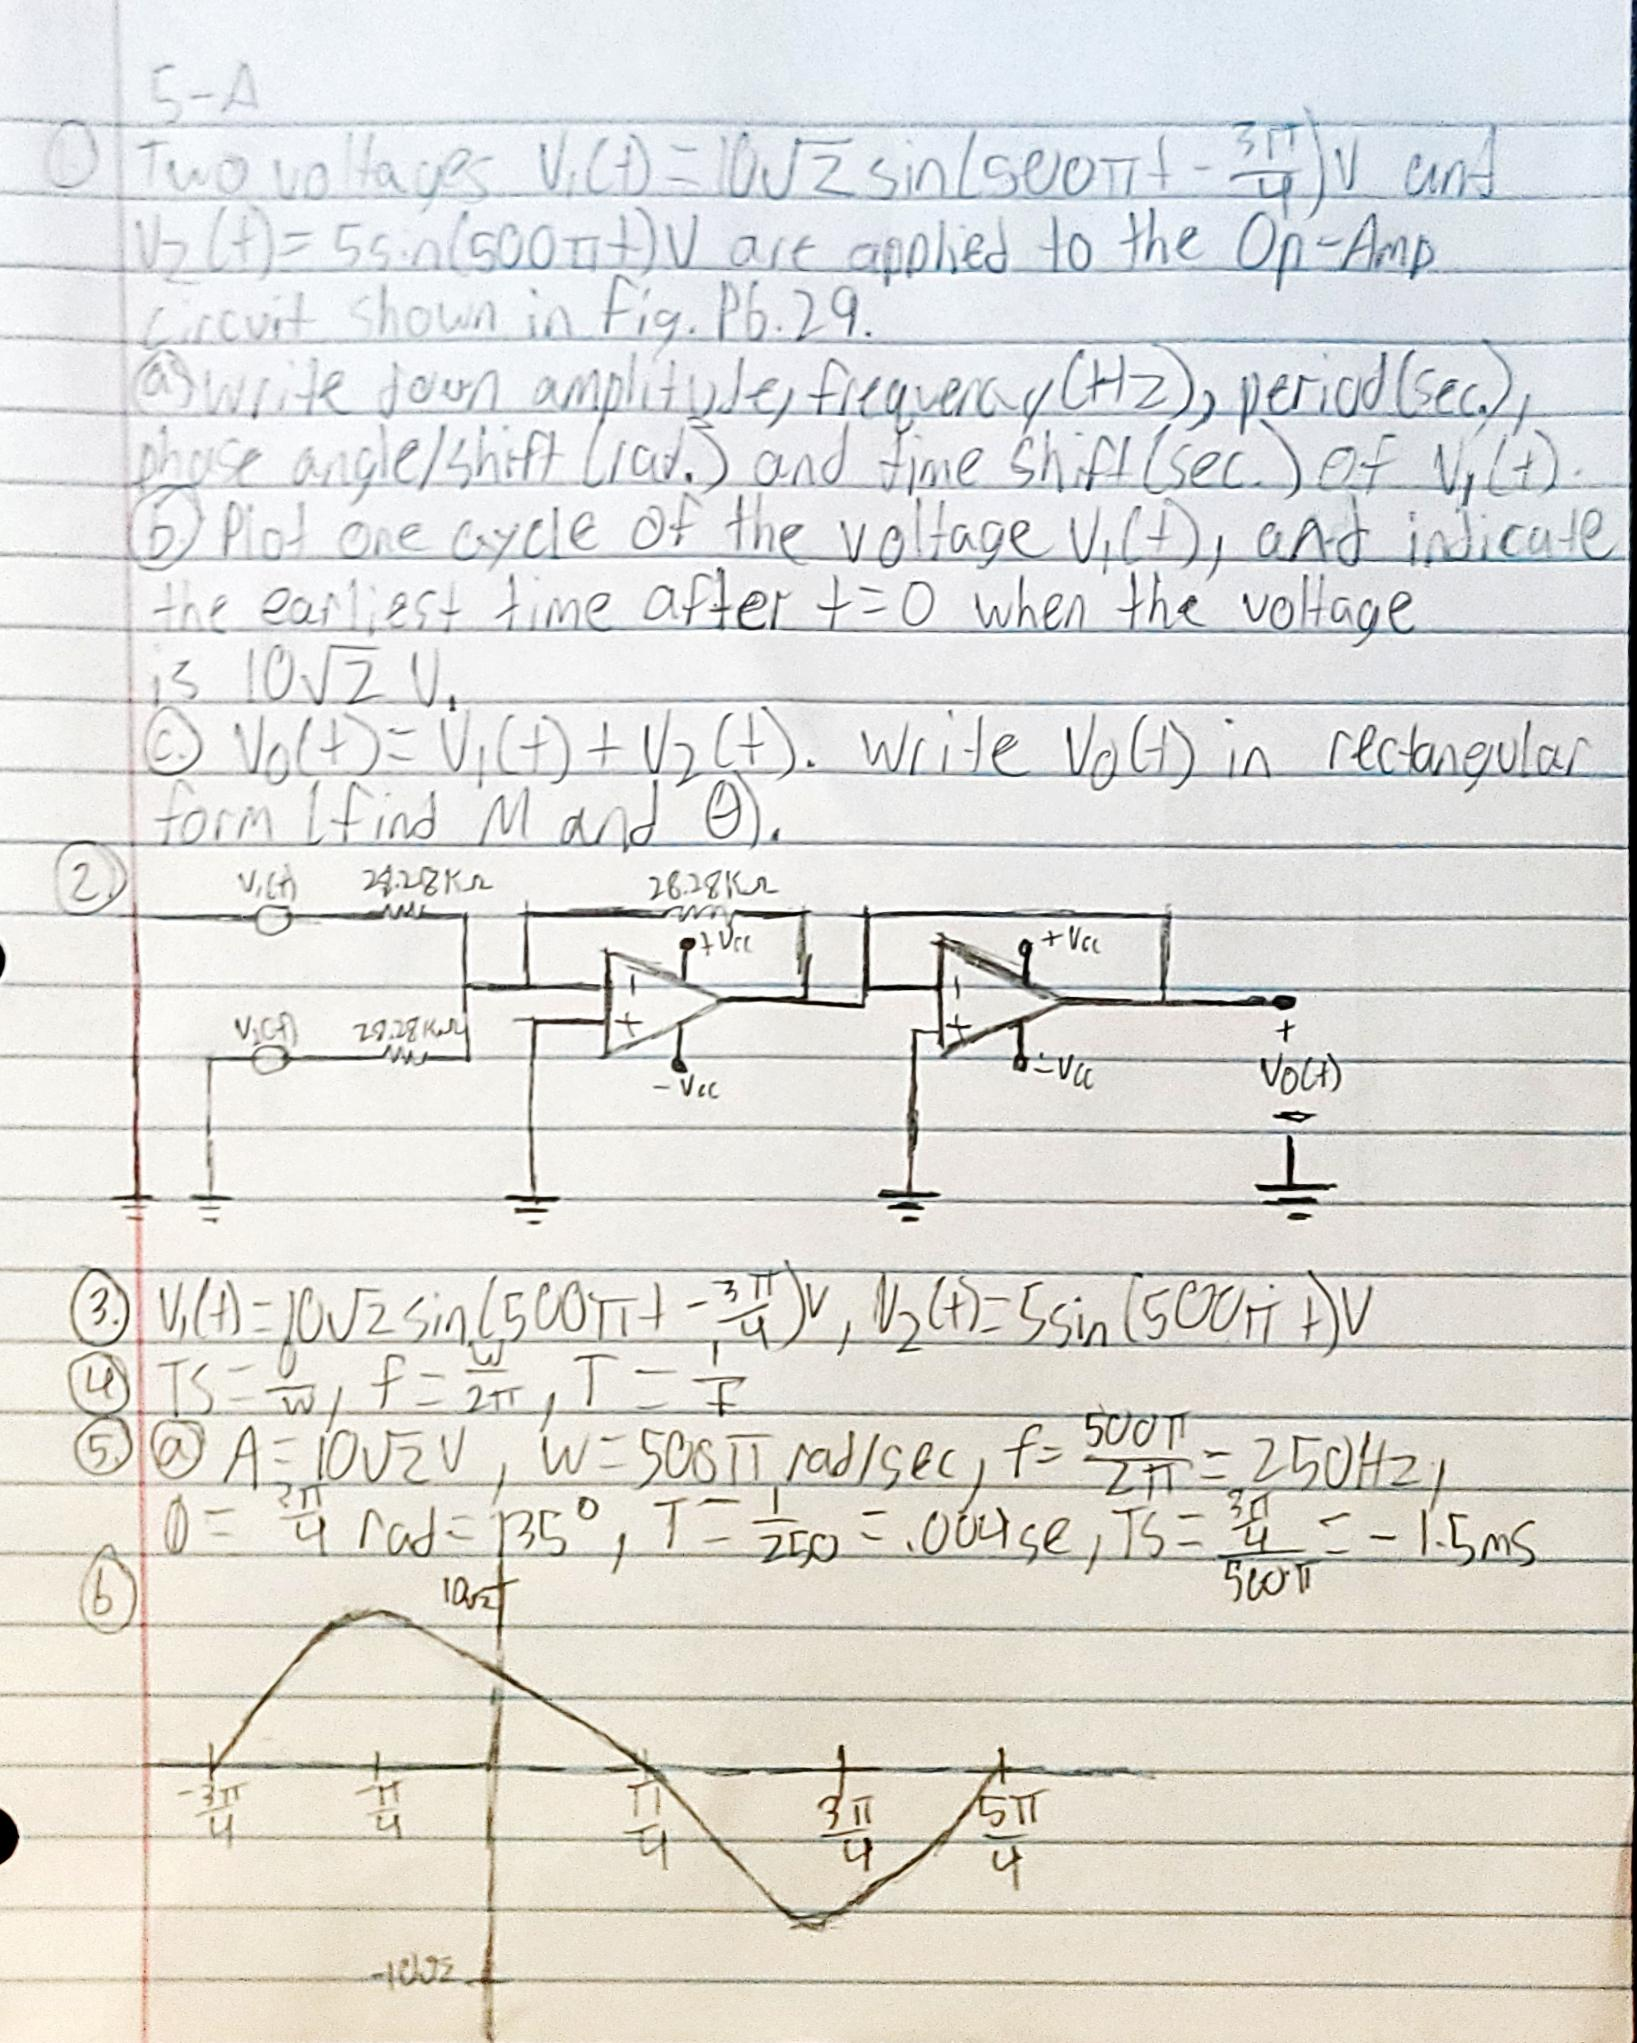 5-A
① Two voltages V₁(t) = 10√2 sin(500πt - 3π/4)V and
V₂(t) = 5sin(500πt)V are applied to the Op-Amp
circuit shown in Fig. P6.29.
ⓐ Write down amplitude, frequency (Hz), period (sec.),
phase angle/shift (rad.) and time shift (sec.) of V₁(t).
ⓑ Plot one cycle of the voltage V₁(t), and indicate
the earliest time after t=0 when the voltage
is 10√2 V.
ⓒ V₀(t) = V₁(t) + V₂(t). Write V₀(t) in rectangular
form (find M and θ).
②
V₁(t) 28.28KΩ 28.28KΩ
+Vcc +Vcc
V₁(t) 28.28KΩ
-Vcc -Vcc
+
V₀(t)
-
③ V₁(t) = 10√2 sin(500πt - 3π/4)V, V₂(t) = 5sin(500πt)V
④ TS = θ/w, f = w/2π, T = 1/f
⑤ ⓐ A = 10√2V, w = 500π rad/sec, f = 500π/2π = 250Hz,
θ = 3π/4 rad = 135°, T = 1/250 = .004se, TS = (3π/4)/500π = -1.5ms
⑥ 10√2
-3π/4 -π/4 π/4 3π/4 5π/4
-10√2